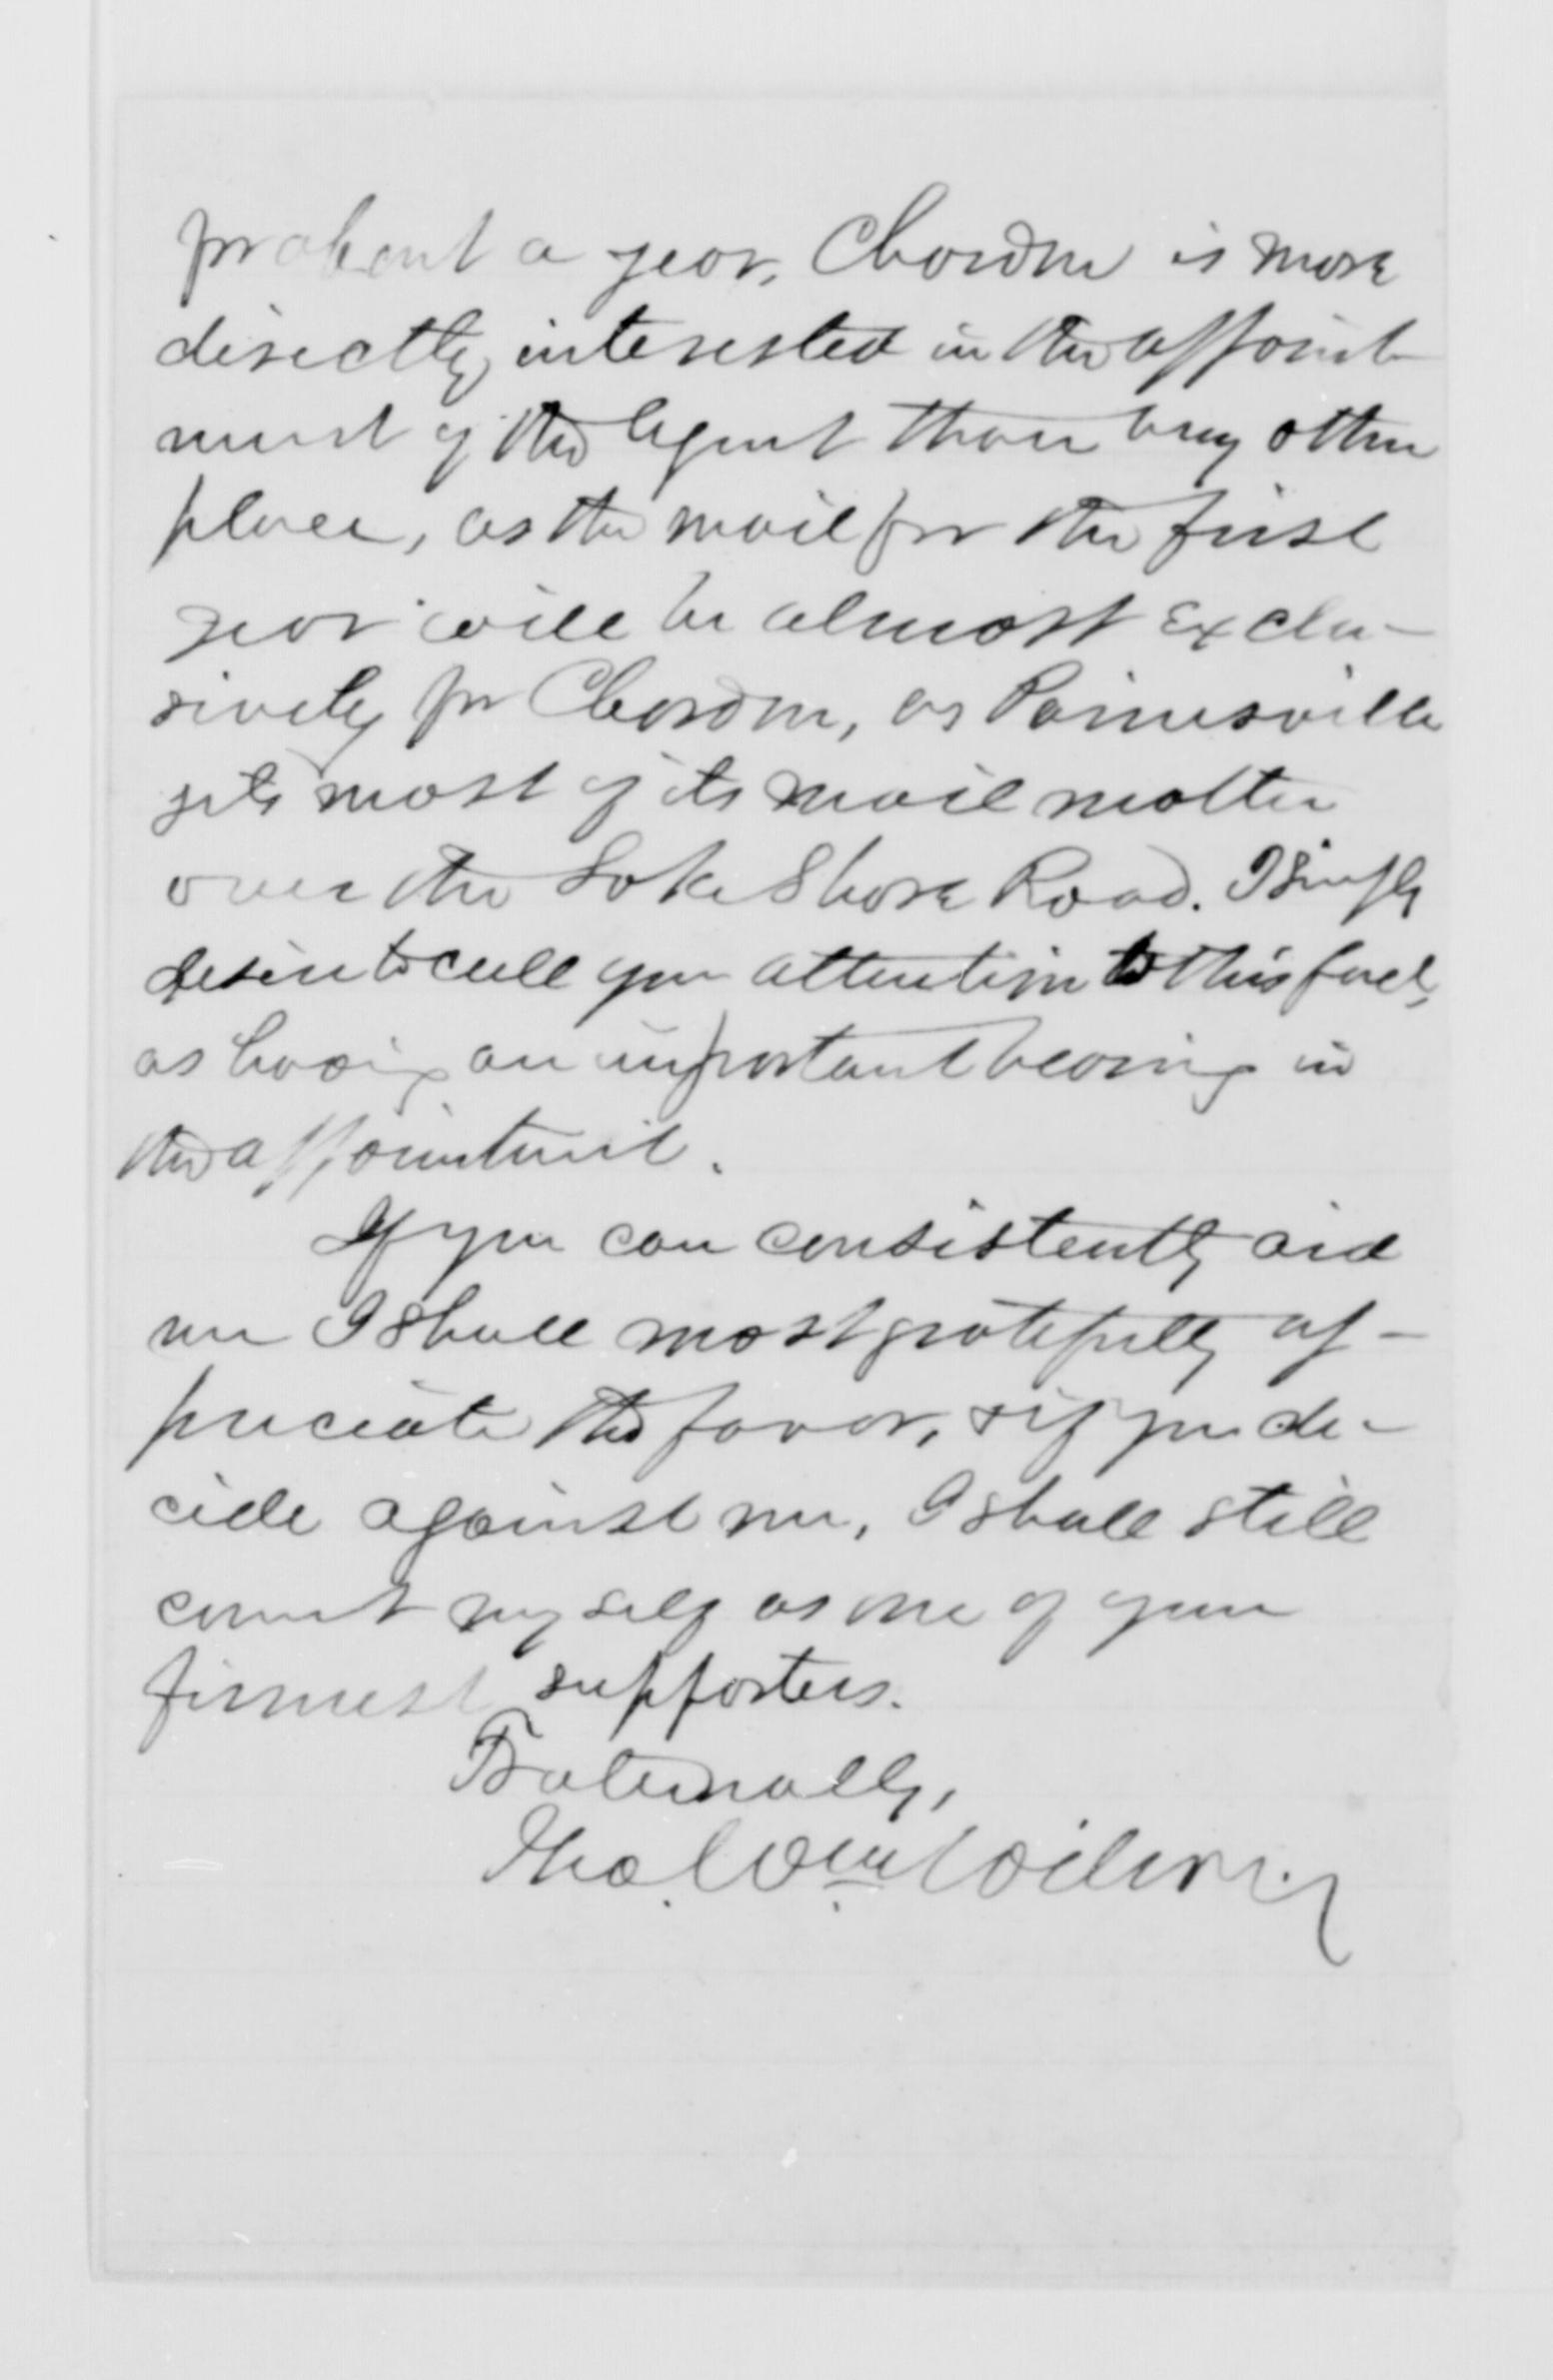 for about a year, Chardon is more
directly interested in the appoint-
ment of the Agent than any other
place, as the mail for the first
year will be almost exclu-
sively for Chardon, as Painesville
gets most of its mail matter
over the Lake Shore Road. I simply
desire to call your attention to this fact,
as having an important bearing in
the appointment.
If you can consistently aid
me I shall most gratefully ap-
preciate the favor, & if you de-
cide against me, I shall still
count myself as one of your
firmest supporters.
Fraternally,
Wm